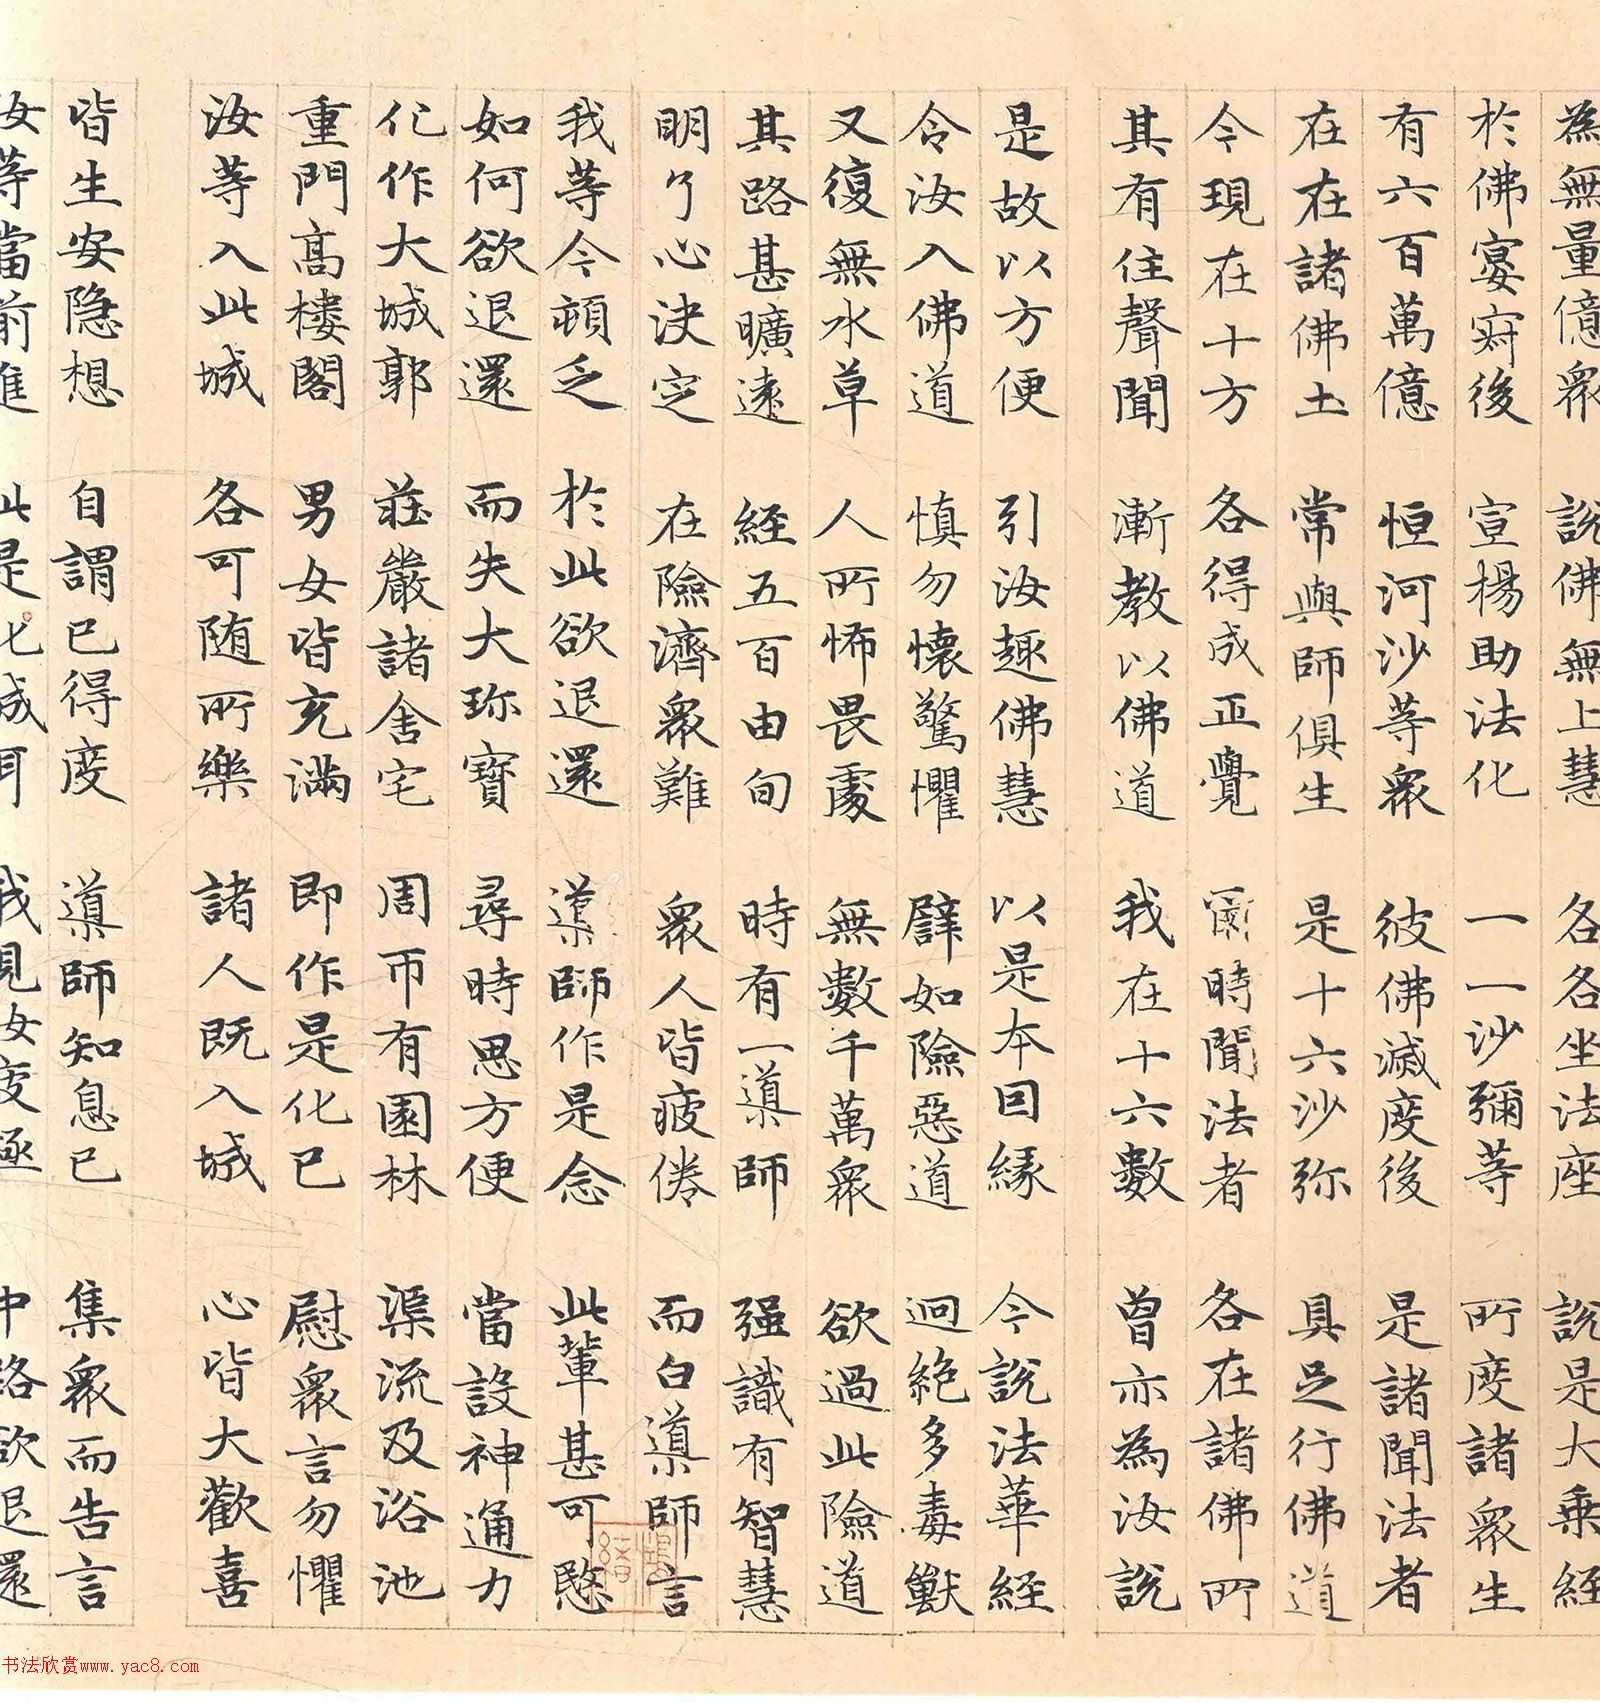 為無量億衆 說佛無上慧 各各坐法座 說是大乗經
於佛宴寂後 宣楊助法化 一一沙彌等 所度諸衆生
有六百萬億 恒河沙等衆 彼佛滅度後 是諸聞法者
在在諸佛土 常與師俱生 是十六沙弥 具足行佛道
今現在十方 各得成正覺 爾時聞法者 各在諸佛所
其有住聲聞 漸教以佛道 我在十六數 曾亦為汝說
是故以方便 引汝趣佛慧 以是本因緣 今說法華經
令汝入佛道 慎勿懷驚懼 譬如險惡道 迥絶多毒獸
又復無水草 人所怖畏處 無數千萬衆 欲過此險道
其路甚曠遠 經五百由旬 時有一導師 强識有智慧
明了心决定 在險濟衆難 衆人皆疲倦 而白導師言
我等今頓乏 於此欲退還 導師作是念 此輩甚可愍
如何欲退還 而失大珎寶 尋時思方便 當設神通力
化作大城郭 莊嚴諸舍宅 周帀有園林 渠流及浴池
重門高樓閣 男女皆充滿 即作是化已 慰衆言勿懼
汝等入此城 各可随所樂 諸人既入城 心皆大歡喜
皆生安隐想 自謂已得度 導師知息已 集衆而告言
汝等當前進 此是化城耳 我見汝疲極 中路欲退還
书法欣赏www.yac8.com